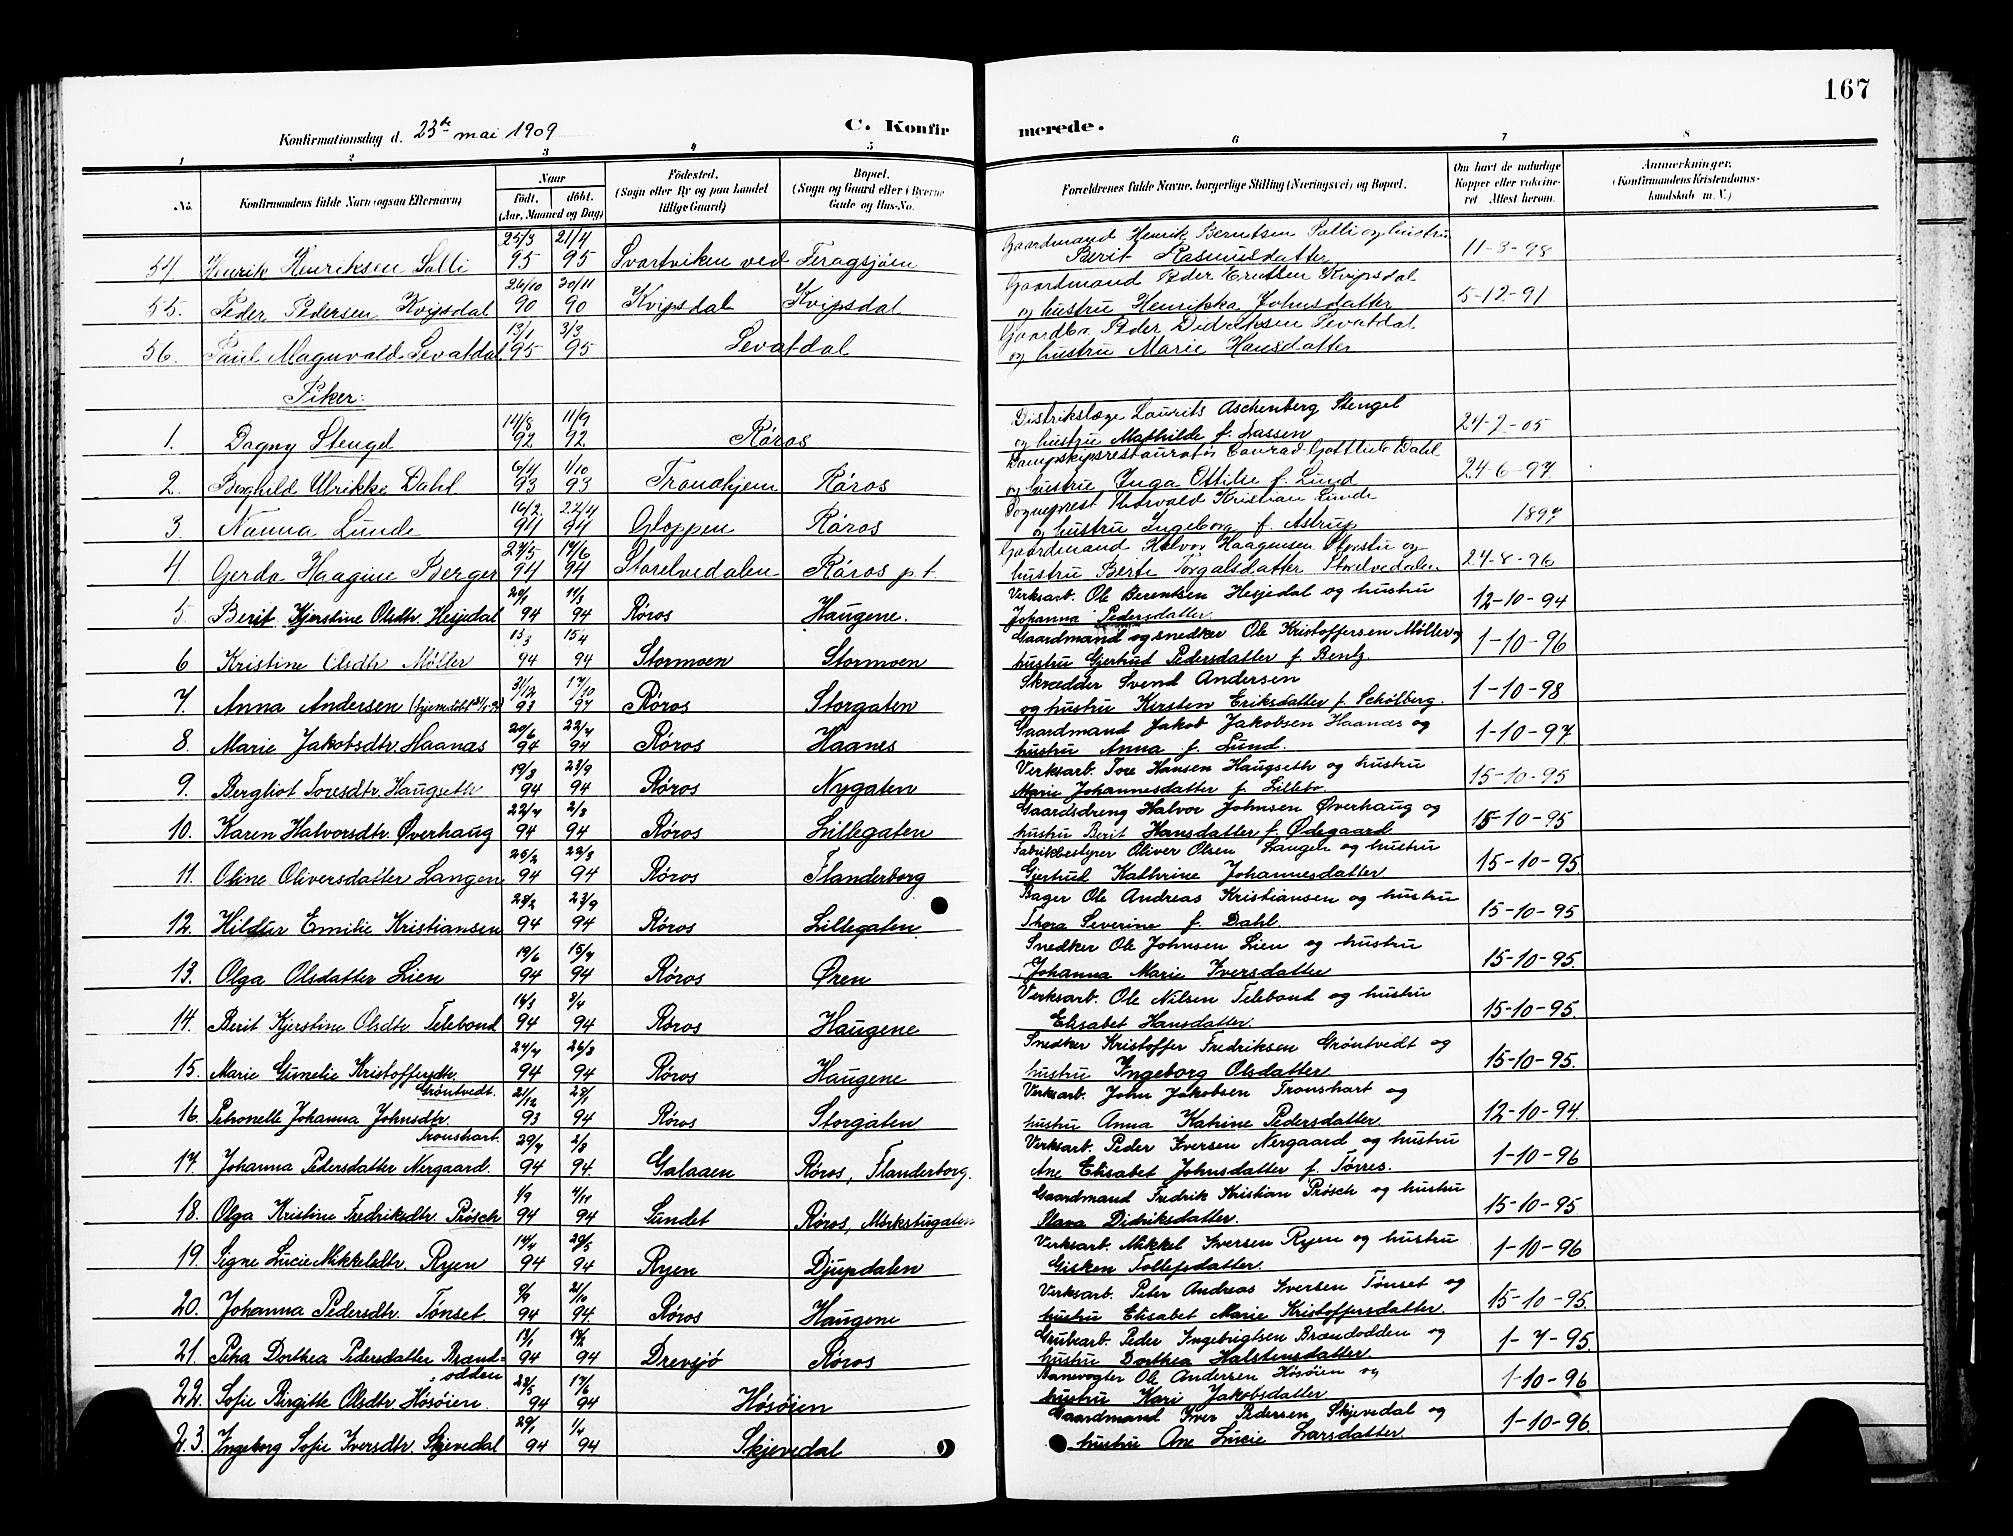 167
Konfirmationsdag d. 23de mai 1909 C. Konfirmerede.
1 2 3 4 5 6 7 8
No. Konfirmandens fulde Navn (ogsaa Efternavn) Naar født. døbt. (Aar, Maaned og Dag) Fødested. (Sogn eller By og paa Landet tillige Gaard) Bopæl. (Sogn og Gaard eller i Byerne Gade og Hus-No. Forældrenes fulde Navne, borgerlige Stilling (Næringsvei) og Bopæl. Om havt de naturlige Kopper eller vaccineret Attest herom. Anmerkninger. (Konfirmandens Kristendomskundskab m. V.)
25/3 21/4 Gaardmand Henrik Berntsen Solli og hustru
54 Henrik Henriksen Solli 95 95 Svartviken ved Feragsjøen Berit Rasmusdatter 11-3-98
26/10 30/11 Gaardmand Peder Knutsen Kvipsdal
55. Peder Pedersen Kvipsdal 90 90 Kvipsdal Kvipsdal og hustru Henrikka Johnsdatter 5-12-91
13/1 3/3 Gaardbr. Peder Didriksen Sevatdal
56. Paul Magnvald Sevatdal 95 95 Sevatdal og hustru Marie Hansdatter
Piker:
14/8 11/9 Distriktslæge Laurits Aschenberg Stengel
1. Dagny Stengel 92 92 Røros og hustru Mathilde f. Lassen 24-7-05
6/4 1/10 Dampskipsrestauratør Conrad Gottlieb Dahl
2. Berghild Ulrikke Dahl 93 93 Trondhjem Røros og hustru Inga Ottilie f. Lund 24-6-97
16/2 22/4 Sogneprest Thorvald Kristian Lunde
3. Nanna Lunde 94 94 Gloppen Røros og hustru Ingeborg f. Astrup 1897
27/5 17/6 Gaardmand Halvor Haagensen
4. Gerda Haagine Berger 94 94 Storelvedalen Røros p. t. hustru Berte Torgalsdatter Storelvedalen 24-8-96
29/1 11/3 Verksarb. Ole Berentsen Hesjedal og hustru
5. Berit Kjerstine Olsdtr Hesjedal 94 94 Røros Haugene. Johanna Pedersdatter. 12-10-94
13/3 15/4 Gaardmand og snedker Ole Kristoffersen Møller og
6 Kristine Olsdtr Møller 94 94 Stormoen Stormoen hustru Gjertrud Pedersdatter f. Bentz. 1-10-96
31/12 17/10 Skrædder Svend Andersen
7. Anna Andersen (hjemdøbt 93 97 Røros Storgaten og hustru Kirsten Eriksdatter f. Schølberg. 1-10-98
20/6 22/7 Gaardmand Jakob Jakobsen Haanæs og
8. Marie Jakobsdtr. Haanæs 94 94 Røros Haanes hustru Anna f. Lund. 1-10-97
19/8 23/9 Verksarb. Tore Hansen Haugseth og hustru
9. Bergliot Toresdtr. Haugseth 94 94 Røros Nygaten Marie Johannesdatter f. Lillebo. 15-10-95
22/7 2/8 Gaardsdreng Halvor Johnsen Øverhaug og
10. Karen Halvorsdtr. Øverhaug 94 94 Røros Lillegaten hustru Berit Hansdatter f. Ødegaard 15-10-95
25/2 22/3 Fabrikbestyrer Oliver Olsen Langen og hustru
11. Oline Oliversdatter Langen 94 94 Røros Flanderborg Gjertrud Kathrine Johannesdatter 15-10-95
23/2 23/9 Bager Ole Andreas Kristiansen og hustru
12. Hildur Emilie Kristiansen 94 94 Røros Lillegaten Thora Severine f. Dahl. 15-10-95
19/6 15/7 Snedker Ole Johnsen Lien og hustru
13. Olga Olsdatter Lien 94 94 Røros Øren Johanna Marie Iversdatter 15-10-95.
14/3 8/4 Verksarb. Ole Nilsen Telebond og hustru
14. Berit Kjerstine Olsdtr Telebond 94 94 Røros Haugene Elisabet Hansdatter. 15-10-95.
24/7 26/8 Snedker Kristoffer Fredriksen Grøntvedt og
15. Marie Gunelie Kristoffersdtr. 94 94 Røros Haugene hustru Ingeborg Olsdatter 15-10-95.
Grøntvedt. 21/12 28/1 Verksarb. John Jakobsen Tronshart og
16. Petronelle Johanna Johnsdtr. 93 94 Røros Storgaten hustru Anna Katrine Pedersdatter. 12-10-94.
Tronshart. 29/7 2/8 Verksarb. Peder Iversen Nergaard og hustru
17. Johanna Pedersdatter Nergaard. 94 94. Galaaen Røros, Flanderborg. Ane Elisabet Johnsdatter f. Tørres. 1-10-96
1/9 4/11 Gaardmand Fredrik Kristian Prøsch og hustru
18. Olga Kristine Fredriksdtr. Prøsch 94 94 Sundet Røros, Mørkstugaten Didriksdatter. 15-10-95
14/4 20/5 Verksarb. Mikkel Iversen Ryen og hustru
19. Signe Lucie Mikkelsdtr. Ryen 94 94 Ryen Djupdalen Gisken Tollefsdatter. 1-10-96
9/9 21/10 Verksarb. Peter Andreas Iversen Tønset og
20. Johanna Pedersdtr. Tønset. 94 94. Røros Haugene hustru Elisabet Marie Kristoffersdatter. 15-10-95.
13/1 18/2 Grubearb. Peder Ingebrigtsen Brændodden og
21. Petra Dorthea Pedersdatter Brænd= 94 94 Drevsjø Røros hustru Dorthea Halstensdatter. 1-7-95
odden 28/5 17/6 Banevogter Ole Andersen Høsøien og
22. Sofie Birgitte Olsdtr Høsøien. 94 94 Høsøien hustru Kari Jakobsdatter 1-10-96
29/1 1/4 Gaardmand Iver Pedersen Skjevedal og
23. Ingeborg Sofie Iversdtr. Skjevedal 94 94 Skjevedal hustru Ane Lucie Larsdatter. 1-10-96.